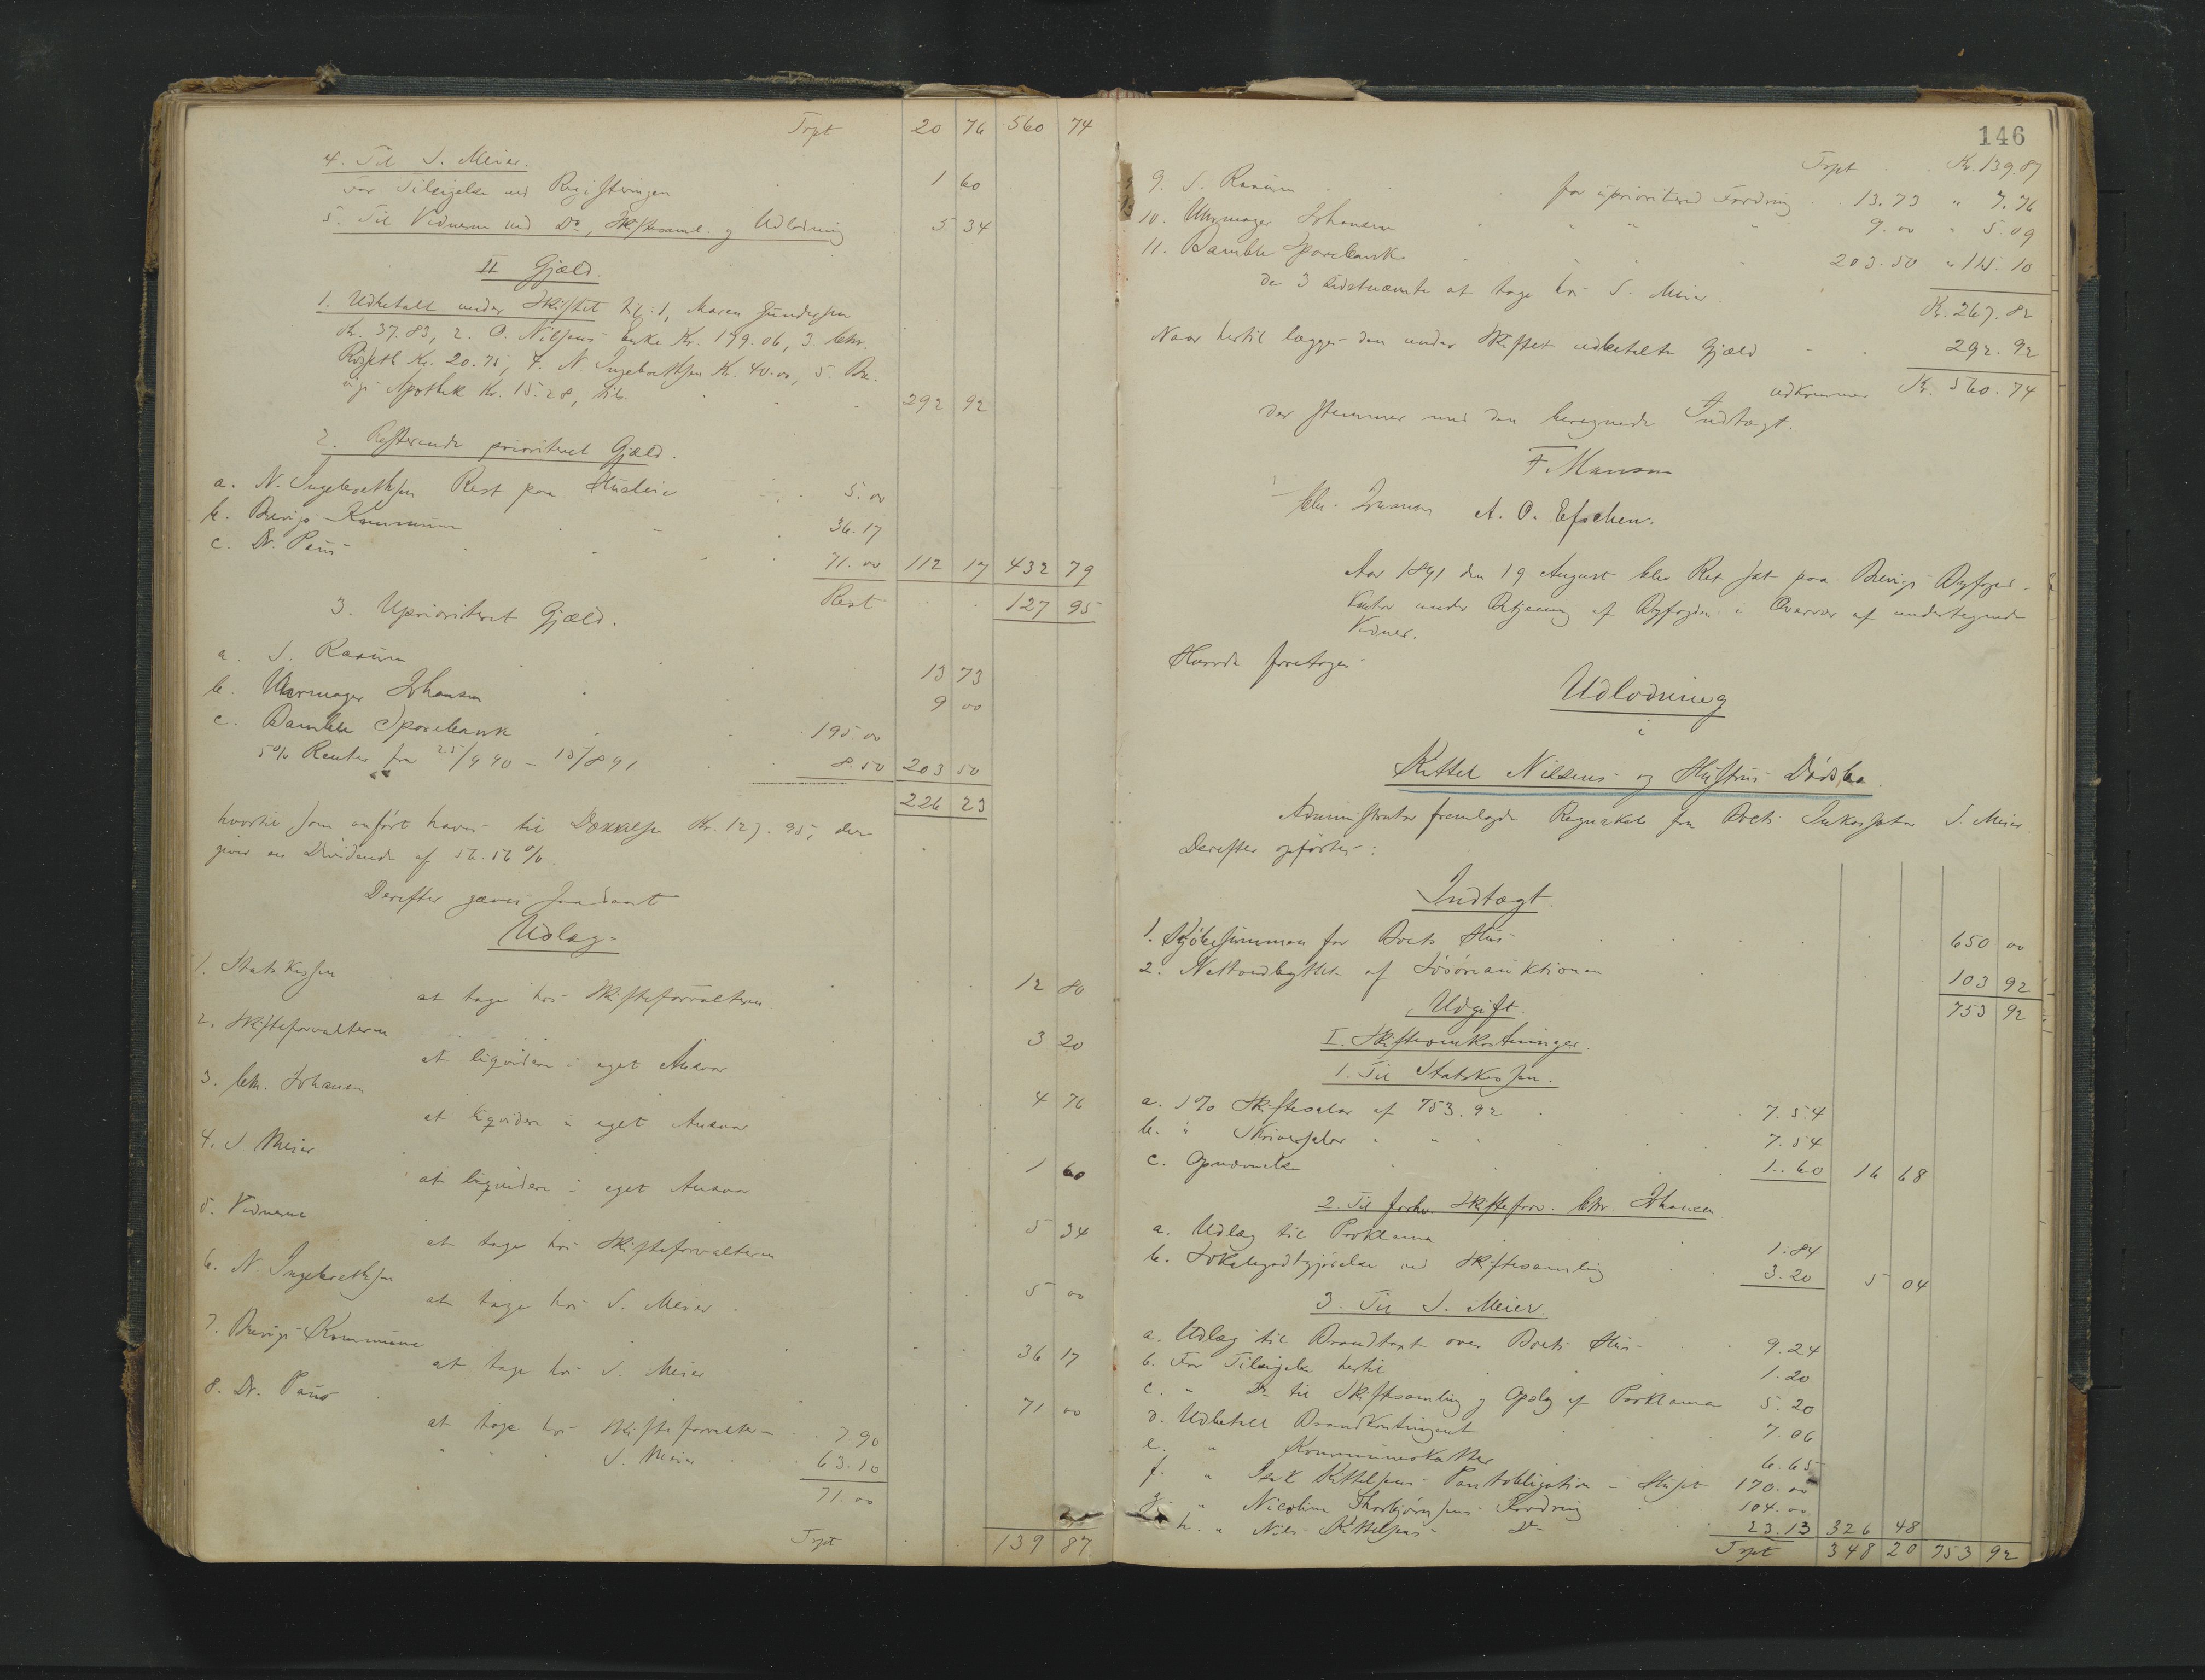 Trpt 20 76 560 74
4. Til S. Meier.
For Tilsigelse ved Registringen 1 60
5. Til Vidnerne ved Do, Skiftesaml. og Udlodning 5 34
II Gjæld.
1. Udbetalt under Skiftet til: 1, Maren Gundersen
Kr. 37.83, 2. O. Nilsens Enke Kr. 179.06, 3. Chr.
Kr. 20.75, 4. N. Ingebrethsen Kr. 40.00, 5. Bre-
vigs Apothek Kr. 15.28, tils. 292 92
2. Resterende prioriteret Gjæld.
a. N. Ingebrethsen Rest paa Husleie 5.00
b. Brevigs Kommune 36.17
c. Dr. Paus 71.00 112 17 432 79
Rest 127 95
3. Uprioriteret Gjæld.
a. S. Raaum 13 73
b. Uhrmager Johansen 9 00
c. Bamble Sparebank 195.00
5% Renter fra 25/9 90 – 15/8 91 8.50 203 50
226 23
hvortil som anført haves til Dækkelse Kr. 127.95, der
giver en Dividende af 56.56 %.
Derefter gaves saadant
Udlæg
1. Statskassen 12 80
at tage hos Skifteforvalteren
2. Skifteforvalteren 3 20
at liqvidere i eget Ansvar
3. Chr. Johansen 4 76
at liqvidere i eget Ansvar
4. S Meier 1 60
at liqvidere i eget Ansvar
5. Vidnerne 5 34
at tage hos Skifteforvalteren
6. N. Ingebrethsen 5 00
at tage hos S. Meier
7. Brevigs Kommune 36 17
at tage hos S. Meier
8. Dr. Paus 71 00
at tage hos Skifteforvalter 7.90
" " " S. Meier 63.10
71.00
Trpt 139 87
146
Trpt Kr. 139.87
9. S. Raaum for uprioriteret Fordring 13.73 " 7.76
10. Uhrmager Johansen " " " 9.00 " 5.09
11. Bamble Sparebank " " " 203.50 " 115.10
de 3 sidstnævnte at tage hos S. Meier.
Kr. 267.82
Naar hertil lægges den under Skiftet udbetalte Gjæld 292.92
udkommer Kr. 560.74
der stemmer med den beregnede Indtægt.
Chr. A. O. Efschen.
Aar 1891 den 19 August blev Ret sat paa Brevigs Byfoged-
kontor under Betjening af Byfogden i Overvær af undertegnede
Vidner.
Hvorda foretoges
Udlodning
i
Kittel Nilsens og Hustrus Dødsbo.
Administrator fremlagde Regnskab fra Boets Inkassator S. Meier.
Derefter opførtes:
Indtægt.
1. Kjøbesummen for Boets Hus 650 00
2. Nettoudbyttet af Løsøreauktionen 103 92
753 92
Udgift.
I. Skifteomkostninger.
1. Til Statskassen.
a. 1% Skiftesalær af 753.92 7.54
b. " Skriversalær " " 7.54
c. Opnævnelse 1.60 16 68
2. Til forhv. Skifteforv. Chr. Johansen.
a. Udlæg til Proklama 1.84
b. Lokalegodtgjørelse ved Skiftesamling 3.20 5 04
3. Til S. Meier.
a. Udlæg til Brandtaxt over Boets Hus 9.24
b. For Tilsigelse hertil 1.20
c. " Do til Skiftesamling og Opslag af Proklama 5.20
d. Udbetalt Brandkontingent 7.06
e. " Kommuneskatter 6.65
f. " Isak Kittelsens Pantobligation i Huset 170.00
g. " Nicoline Thorbjørnsens Fordring 104.00
h. " Nils Kittelsens Do 23.13 326 48
Trpt 348 20 753 92